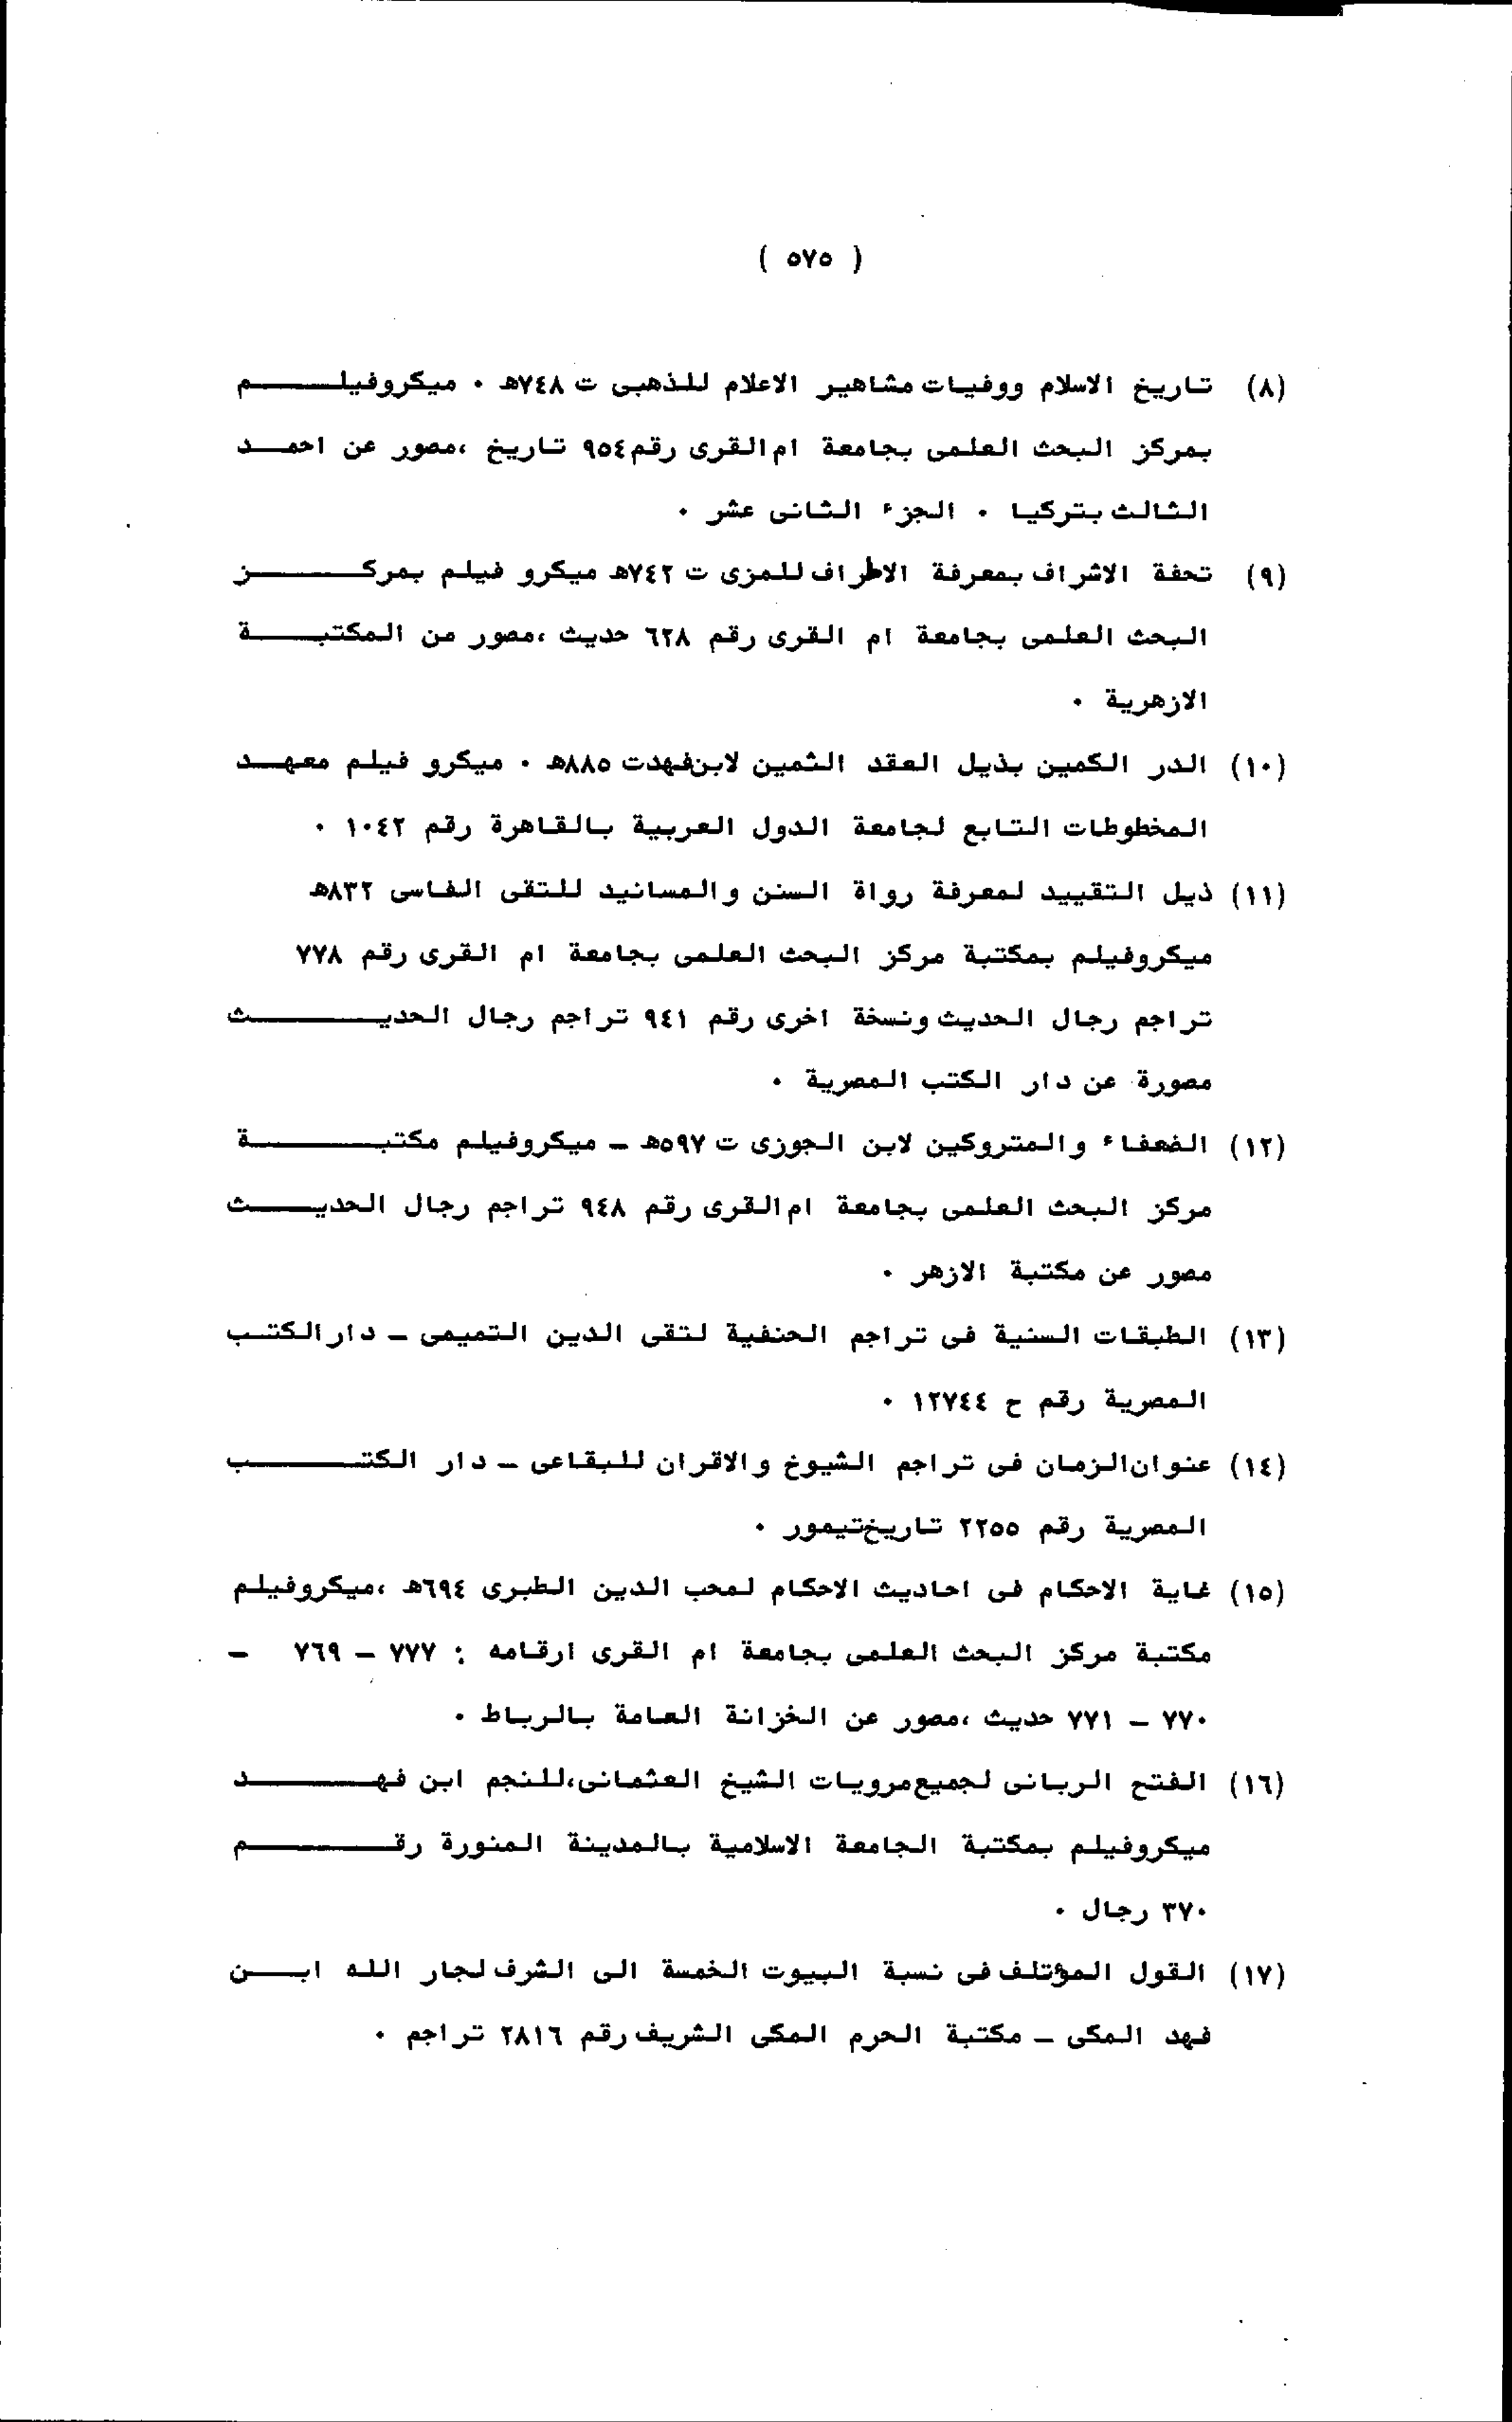 ( ٥٧٥ )
(٨) تاريخ الاسلام ووفيات مشاهير الاعلام للذهبى ت ٧٤٨هـ ٠ ميكروفيلم
بمركز البحث العلمى بجامعة ام القرى رقم ٩٥٤ تاريخ ،مصور عن احمد
الثالث بتركيا ٠ الجزء الثانى عشر ٠
(٩) تحفة الاشراف بمعرفة الاطراف للمزى ت ٧٤٢هـ ميكرو فيلم بمركز
البحث العلمى بجامعة ام القرى رقم ٦٢٨ حديث ،مصور من المكتبة
الازهرية ٠
(١٠) الدر الكمين بذيل العقد الثمين لابن فهد ت ٨٨٥هـ ٠ ميكرو فيلم معهد
المخطوطات التابع لجامعة الدول العربية بالقاهرة رقم ١٠٤٢ ٠
(١١) ذيل التقييد لمعرفة رواة السنن والمسانيد للتقى الفاسى ٨٣٢هـ
ميكروفيلم بمكتبة مركز البحث العلمى بجامعة ام القرى رقم ٧٧٨
تراجم رجال الحديث ونسخة اخرى رقم ٩٤١ تراجم رجال الحديث
مصورة عن دار الكتب المصرية ٠
(١٢) الضعفاء والمتروكين لابن الجوزى ت ٥٩٧هـ - ميكروفيلم مكتبة
مركز البحث العلمى بجامعة ام القرى رقم ٩٤٨ تراجم رجال الحديث
مصور عن مكتبة الازهر ٠
(١٣) الطبقات السنية فى تراجم الحنفية لتقى الدين التميمى - دار الكتب
المصرية رقم ح ١٢٧٤٤ ٠
(١٤) عنوان الزمان فى تراجم الشيوخ والاقران للبقاعى - دار الكتب
المصرية رقم ٢٢٥٥ تاريخ تيمور ٠
(١٥) غاية الاحكام فى احاديث الاحكام لمحب الدين الطبرى ٦٩٤هـ ،ميكروفيلم
مكتبة مركز البحث العلمى بجامعة ام القرى ارقامه : ٧٧٧ - ٧٦٩ -
٧٧٠ - ٧٧١ حديث ،مصور عن الخزانة العامة بالرباط ٠
(١٦) الفتح الربانى لجميع مرويات الشيخ العثمانى،للنجم ابن فهد
ميكروفيلم بمكتبة الجامعة الاسلامية بالمدينة المنورة رقم
٣٧٠ رجال ٠
(١٧) القول المؤتلف فى نسبة البيوت الخمسة الى الشرف لجار الله ابن
فهد المكى - مكتبة الحرم المكى الشريف رقم ٢٨١٦ تراجم ٠